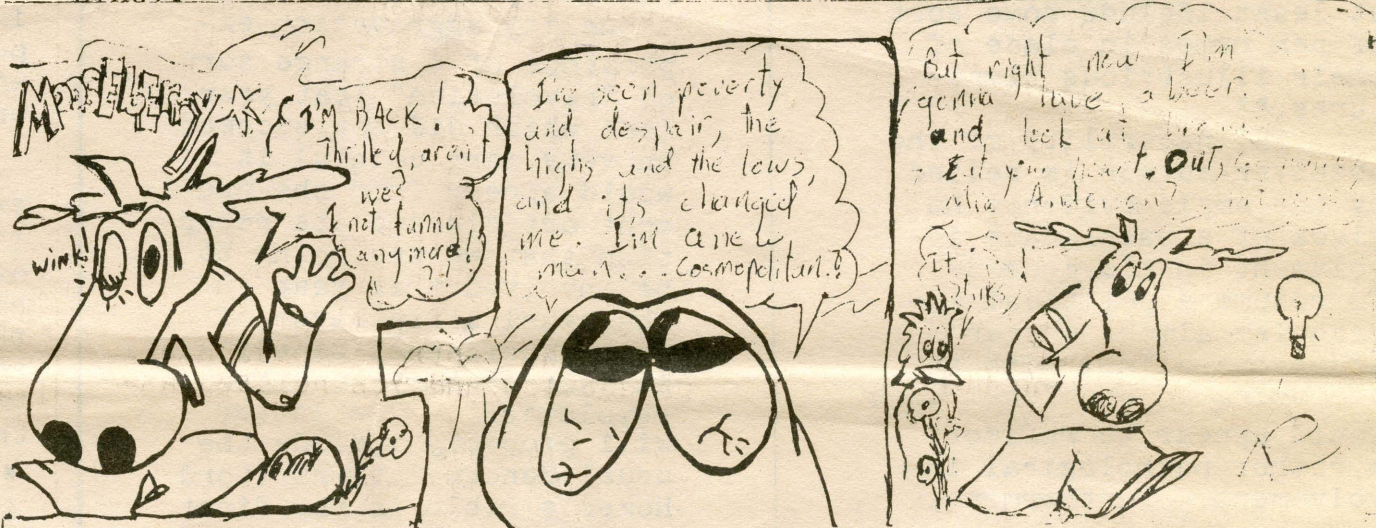 MOOSELBERRY
I'M BACK!
Thrilled, aren't
we?
I not funny
anymore!!
?!
wink!
I've seen poverty
and despair, the
highs and the lows,
and it's changed
me. I'm a new
man... Cosmopolitan.?
But right now I'm
gonna have a beer.
and look at
Eat your heart out,
Mia Anderson?
It
stinks!